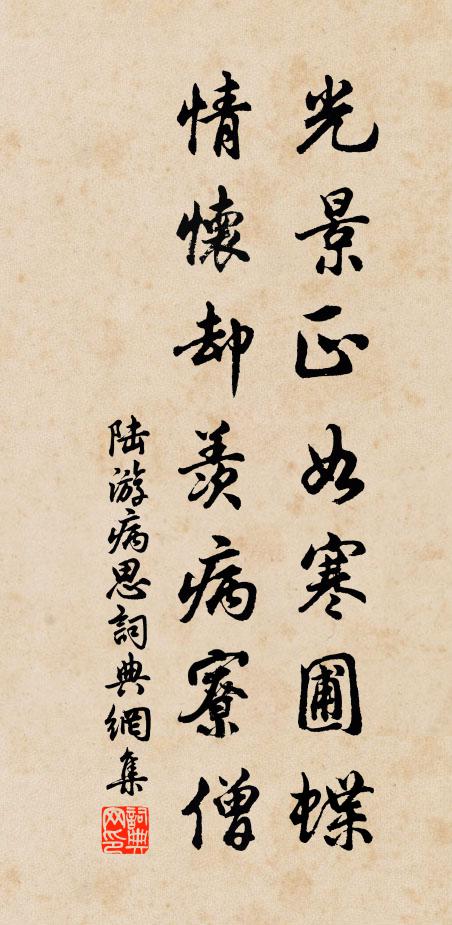 光景正如寒圃蝶
情懷却羨病寮僧
陸游病思詞典網集
詞典网印